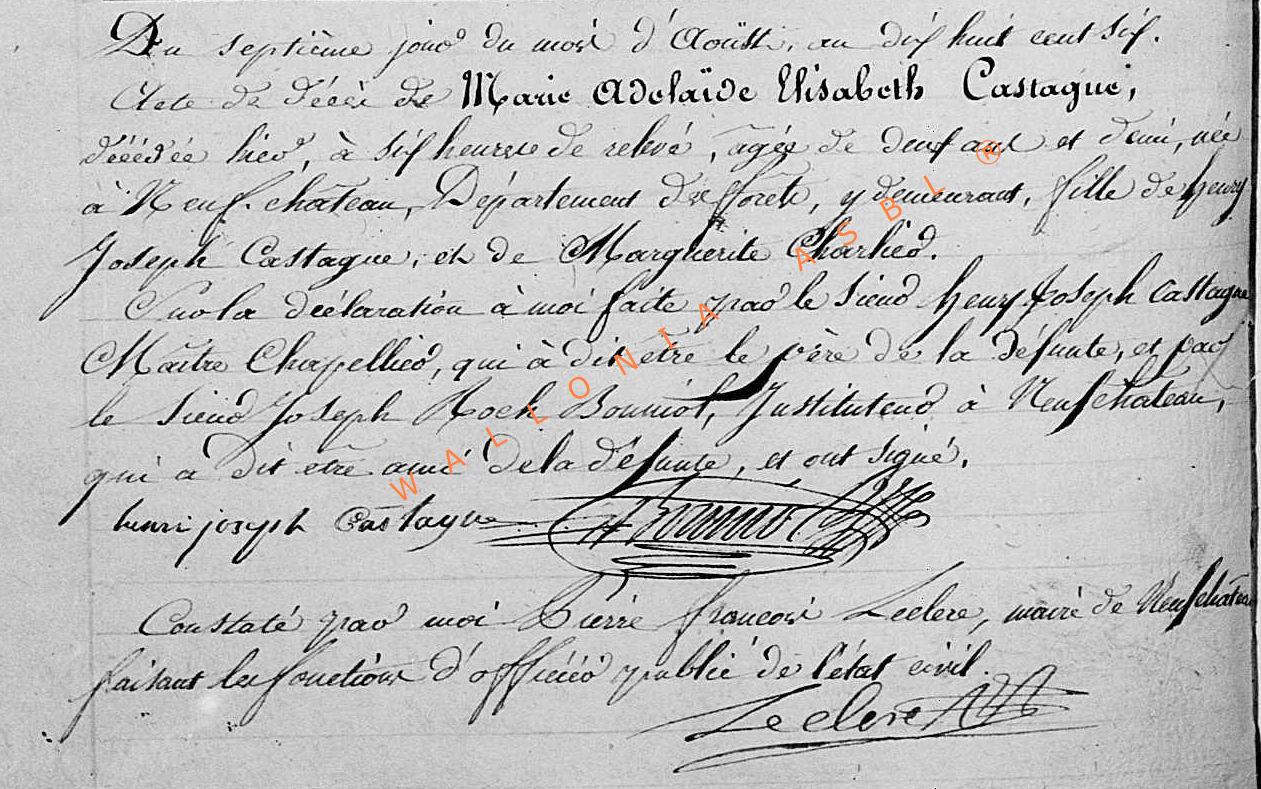 Du septième jour du mois d'Aoüst, an dix huit cent six.
Acte de décès de Marie Adelaïde Elisabeth Castagne,
décédée hier, à six heures de relevé, agée de deux ans et demi, née
à Neuf-château, Département des forêts, y demeurant, fille de henry
Joseph Castagne, et de Marguerite Charlier.
Sur la déclaration à moi faite par le Sieur henry Joseph Castagne
Maître Chapellier, qui à dit être le père de la défunte, et par
le Sieur Joseph Roch Bonniol, Instituteur à Neufchateau,
qui a dit être ami de la défunte, et ont signé.
henri joseph Castagne
Constaté par moi Pierre françois Leclerc, maire de Neufchâteau
faisant les fonctions d'officier public de l'état civil.
Leclerc
WALLONIA ASBL ®